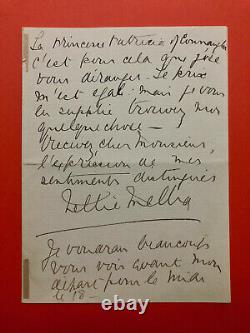 La Princesse Patricia of Connaught
c'est pour cela que j'ose
vous déranger. Le prix
m'est égal mais je vous
en supplie trouvez moi
quelque chose —
Recevez cher Monsieur,
l'expression de mes
sentiments distingués
Nellie Melba
Je voudrais beaucoup
vous voir avant mon
départ pour le Midi
le 18 —
© westernauctions.com